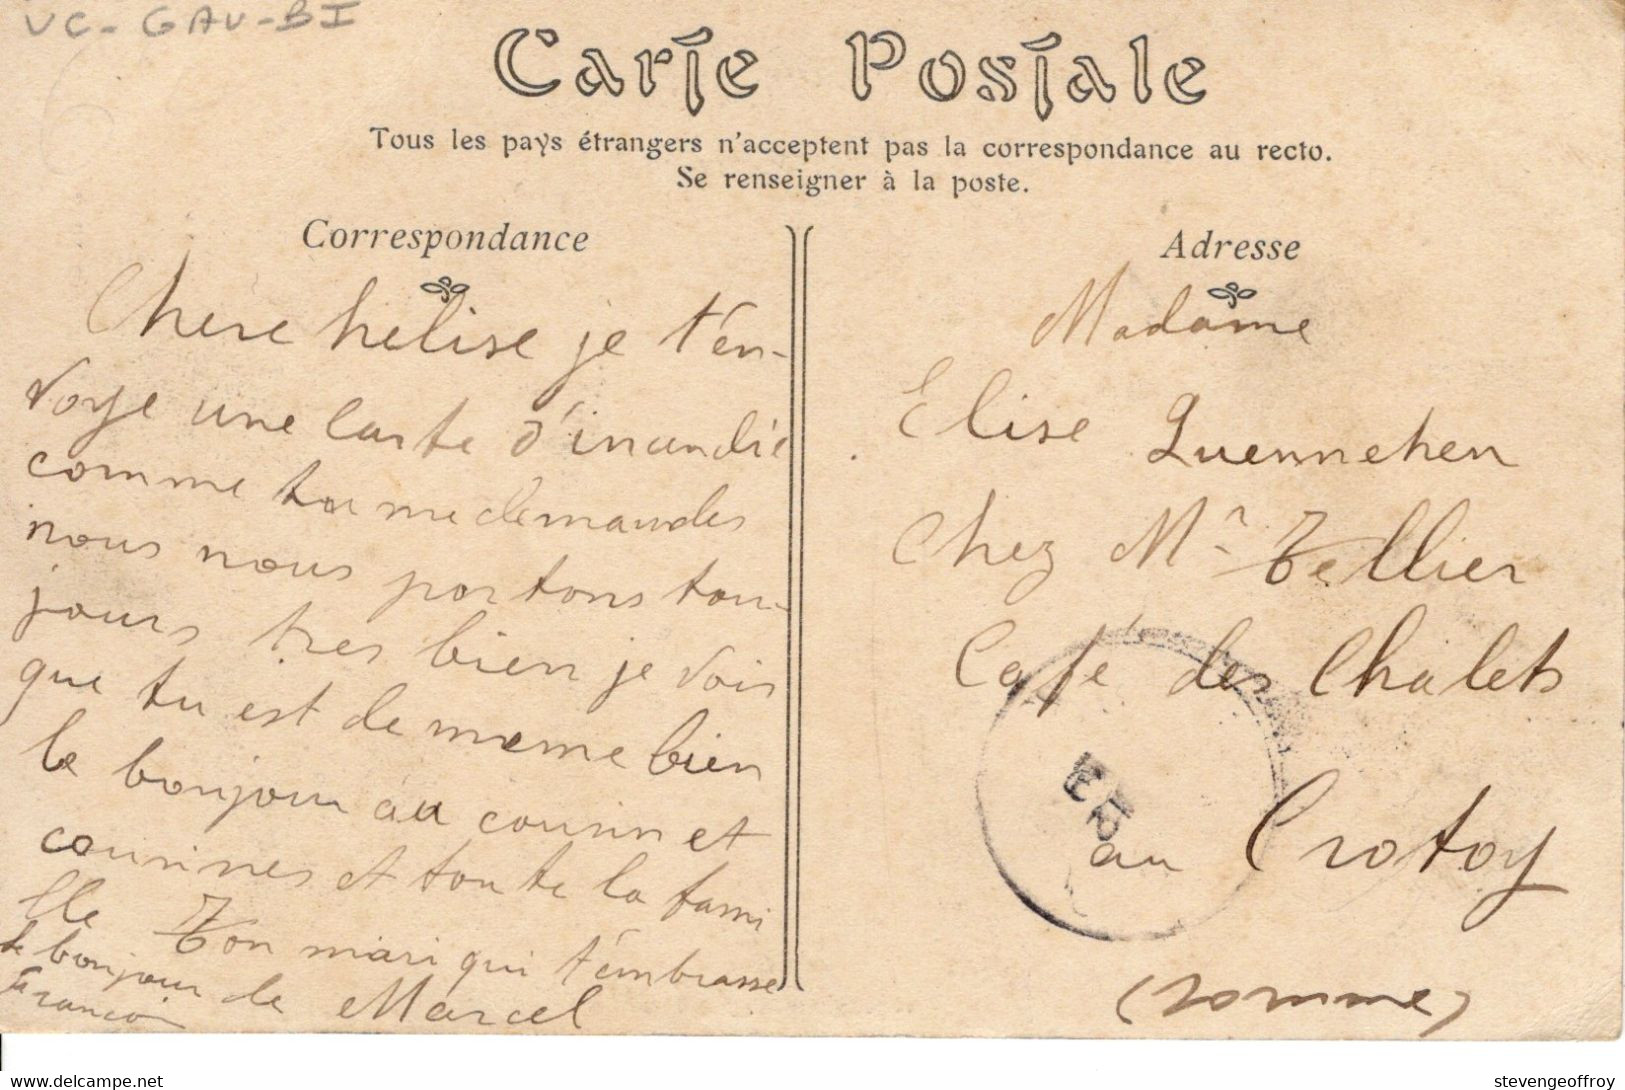 VC-GAV-BI
Carte Postale
Tous les pays étrangers n'acceptent pas la correspondance au recto.
Se renseigner à la poste.
Correspondance
Chère hélise je t'en-
voye une carte d'incendie
comme tu me demandes
nous nous portons tou-
jours tres bien je vois
que tu est de meme bien
le bonjour au cousin et
cousines et toute la fami
lle Ton mari qui t'embrasse
le bonjour de Marcel
Francois
Adresse
Madame
Elise Quennehen
Chez Mr Tellier
Café des Chalets
au Crotoy
(Somme)
stevengeoffroy
delcampe.net